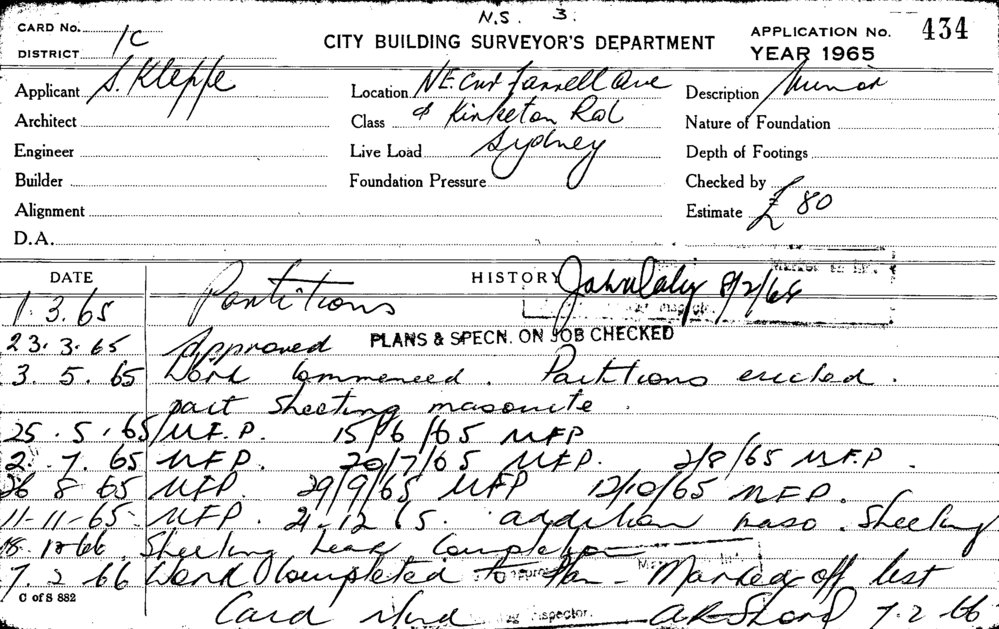 N.S. 3.
CARD No.
1C
DISTRICT
CITY BUILDING SURVEYOR'S DEPARTMENT
APPLICATION No. 434
YEAR 1965
Applicant S. Kleppe
Location N.E. Cnr Farrell Ave
Description Minor
Architect
Class & Kirketon Rd
Nature of Foundation
Engineer
Live Load Sydney
Depth of Footings
Builder
Foundation Pressure
Checked by
Alignment
Estimate £ 80
D.A.
DATE
HISTORY John Daly 8/2/65
1. 3. 65 Partitions
23. 3. 65 Approved PLANS & SPECN. ON JOB CHECKED
3. 5. 65 Work Commenced. Partitions erected.
part sheeting masonite.
25. 5. 65 M.F.P. 15/6/65 MFP
2. 7. 65 MFP. 20/7/65 MFP. 2/8/65 M.F.P.
26 8 65 MFP 29/9/65 MFP 12/10/65 MFP.
11-11-65 MFP. 21.12 65. addition maso. Sheeting
18. 1 66 Sheeting near Completion
7. 2 66 Work Completed to Plan - Marked off list
C of S 882
Card Inspector. 7.2 66